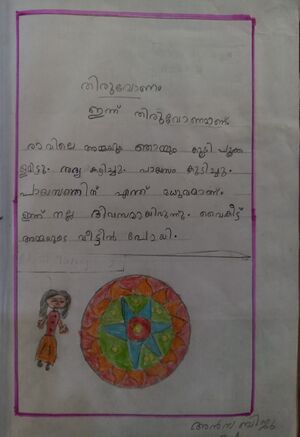 തിരുവോണം
ഇന്ന് തിരുവോണമാണ്
രാവിലെ അമ്മയും ഞാനും കൂടി പൂക്ക
ളമിട്ടു. സദ്യ കഴിച്ചു. പായസം കുടിച്ചു.
പായസത്തിന് എന്ത് മധുരമാണ്.
ഇന്ന് നല്ല ദിവസമായിരുന്നു. വൈകീട്ട്
അമ്മയുടെ വീട്ടിൽ പോയി.
അൻന